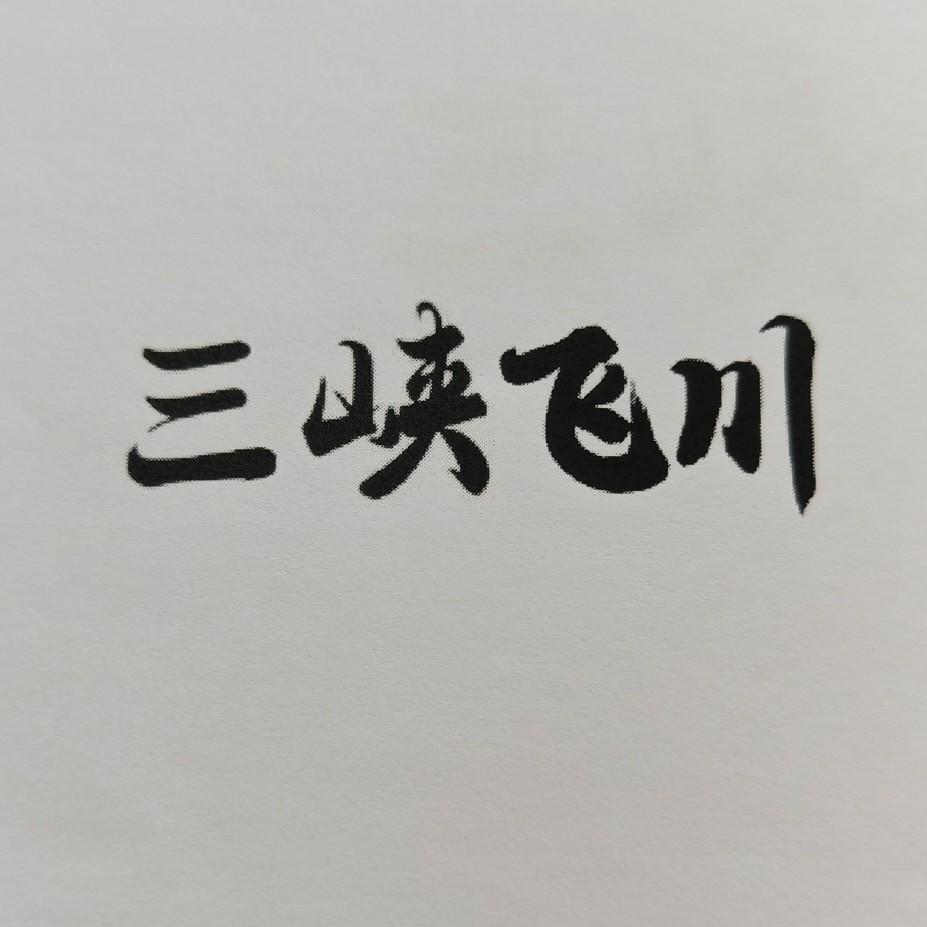 三峡飞川